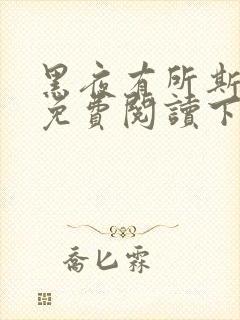 黑夜有所斯
免費閱讀下
喬匕霖